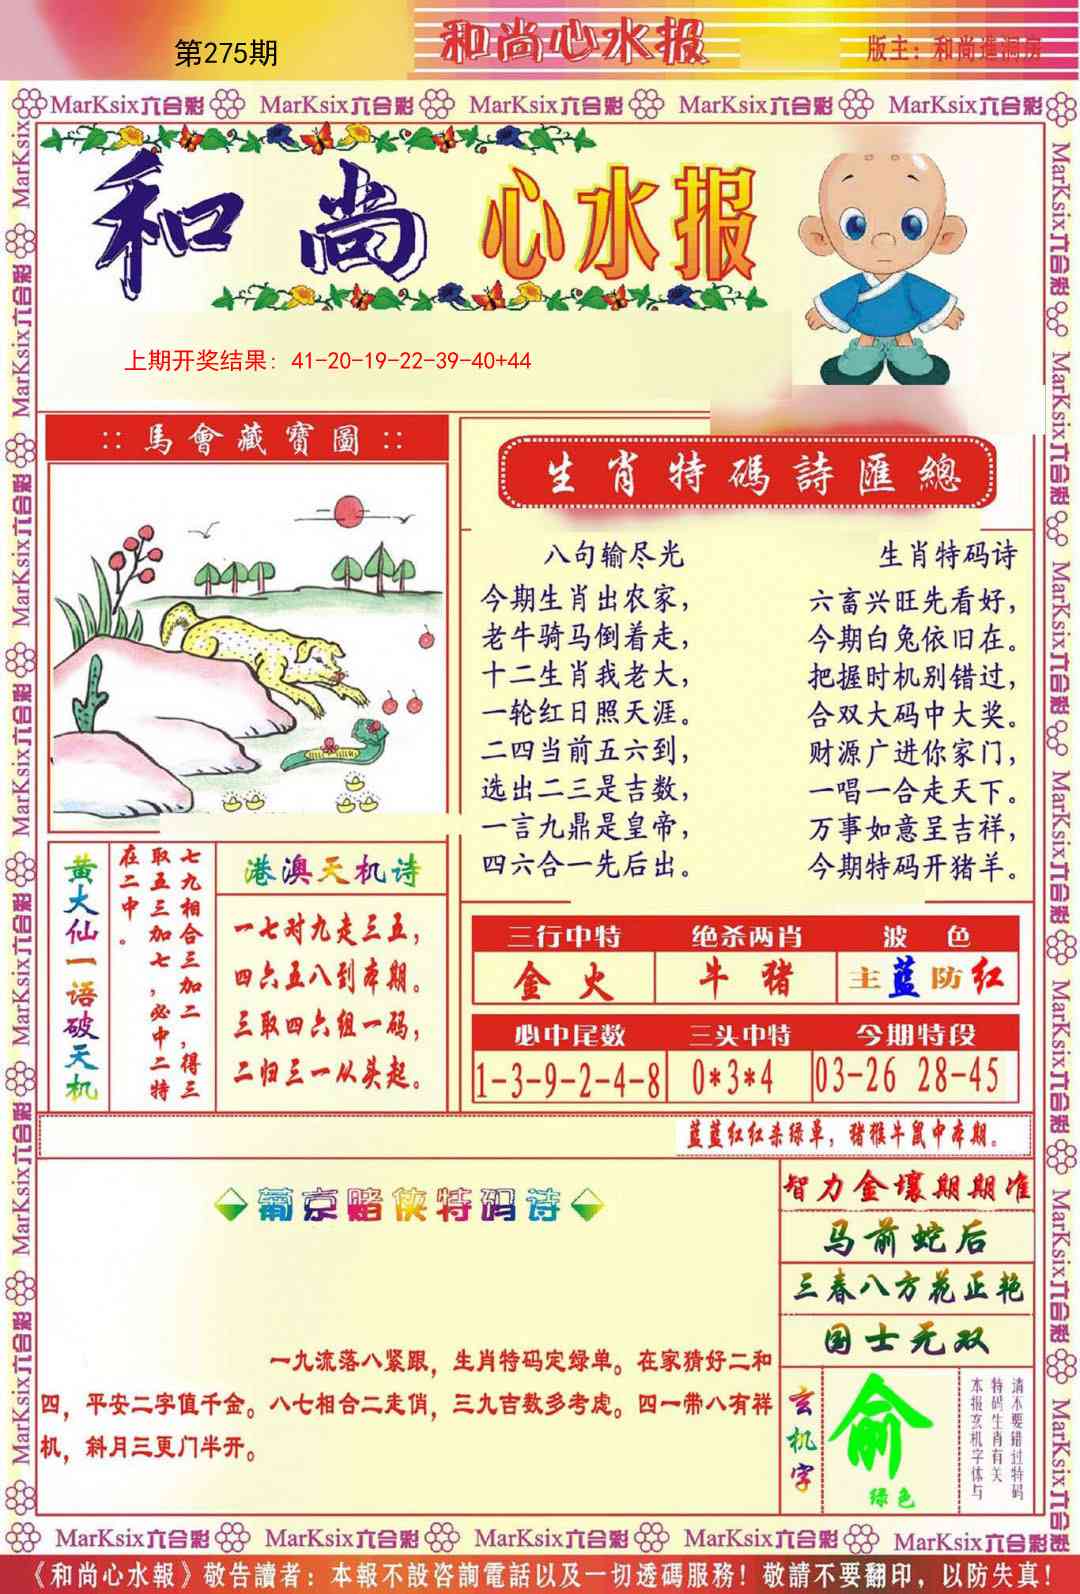 第275期
和尚心水报
版主：和尚進洞房
MarKsix六合彩 MarKsix六合彩 MarKsix六合彩 MarKsix六合彩 MarKsix六合彩
和尚心水报
上期开奖结果：41-20-19-22-39-40+44
::馬會藏寶圖::
生肖特碼詩匯總
八句输尽光
今期生肖出农家，
老牛骑马倒着走，
十二生肖我老大，
一轮红日照天涯。
二四当前五六到，
选出二三是吉数，
一言九鼎是皇帝，
四六合一先后出。
生肖特码诗
六畜兴旺先看好，
今期白兔依旧在。
把握时机别错过，
合双大码中大奖。
财源广进你家门，
一唱一合走天下。
万事如意呈吉祥，
今期特码开猪羊。
黄大仙一语破天机
七九相合三加二，得三
取五三加七，必中二特
在二中。
港澳天机诗
一七对九走三五，
四六五八到本期。
三取四六组一码，
二归三一从头起。
三行中特 绝杀两肖 波色
金火 牛猪 主蓝防红
必中尾数 三头中特 今期特段
1-3-9-2-4-8 0*3*4 03-26 28-45
蓝蓝红红杀绿单，猪猴牛鼠中本期。
葡京赌侠特码诗
一九流落八紧跟，生肖特码定绿单。在家猜好二和
四，平安二字值千金。八七相合二走俏，三九吉数多考虑。四一带八有祥
机，斜月三更门半开。
智力金壤期期准
马前蛇后
三春八方花正艳
国士无双
玄机字
俞
绿色
请不要错过特码
特码生肖有关
本报玄机字体与
MarKsix六合彩 MarKsix六合彩 MarKsix六合彩 MarKsix六合彩 MarKsix六合彩
《和尚心水報》敬告讀者：本報不設咨詢電話以及一切透碼服務！敬請不要翻印，以防失真！